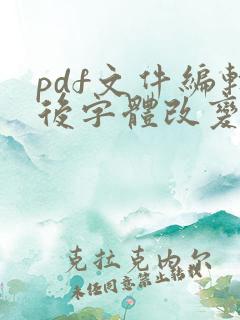 pdf文件編輯
後字體改變
克拉克内尔
未经同意禁止转载